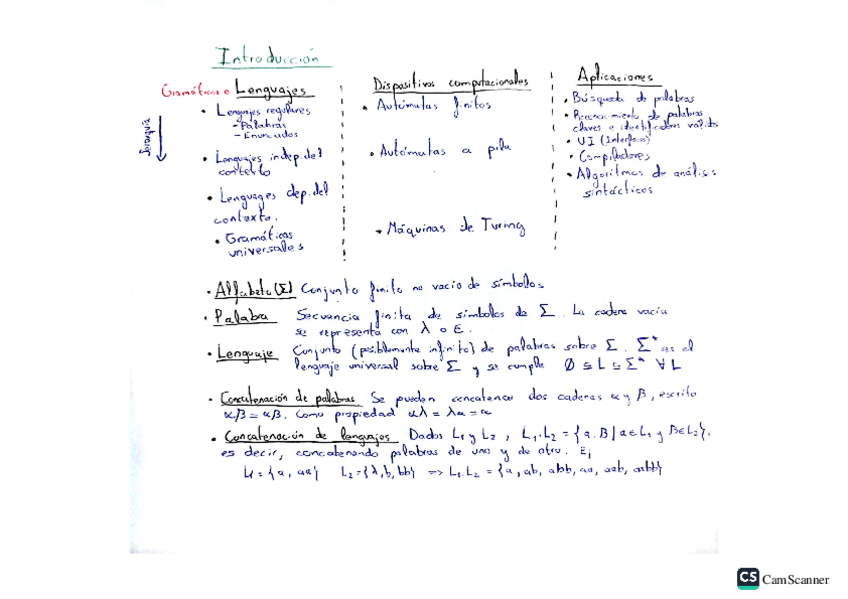 Introducción
Gramáticas o Lenguajes
• Lenguajes regulares
- Palabras
- Enunciados
• Lenguajes indep. del
contexto
• Lenguages dep. del
contexto.
• Gramáticas
universales
Dispositivos computacionales
• Autómatas finitos
• Autómatas a pila
• Máquinas de Turing
Aplicaciones
• Búsqueda de palabras
• Reconocimiento de palabras
claves e identificadores válidos
• UI (Interfaces)
• Compiladores
• Algoritmos de análisis
sintácticos
• Alfabeto (Σ) Conjunto finito no vacío de símbolos
• Palabra Secuencia finita de símbolos de Σ. La cadena vacía
se representa con λ o ε.
• Lenguaje Conjunto (posiblemente infinito) de palabras sobre Σ. Σ* es el
lenguaje universal sobre Σ y se cumple ∅ ⊆ L ⊆ Σ* ∀ L
• Concatenación de palabras Se pueden concatenar dos cadenas α y β, escrito
α·β = αβ. Como propiedad αλ = λα = α
• Concatenación de lenguajes Dados L₁ y L₂, L₁.L₂ = {α.β | α∈L₁ y β∈L₂},
es decir, concatenando palabras de uno y de otro. Ej
L₁ = {a, aa} L₂ = {λ, b, bb} => L₁.L₂ = {a, ab, abb, aa, aab, aabb}
CS CamScanner